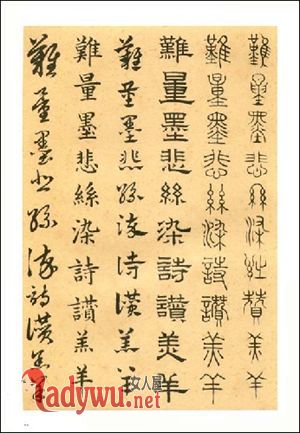 難量墨悲絲染詩贊羔羊
難量墨悲絲染詩讚羔羊
難量墨悲絲染詩讚羔羊
難量墨悲絲染詩讚羔羊
難量墨悲絲染詩讚羔羊
難量墨悲絲染詩讚羔羊
女人屋
Ladywu.net